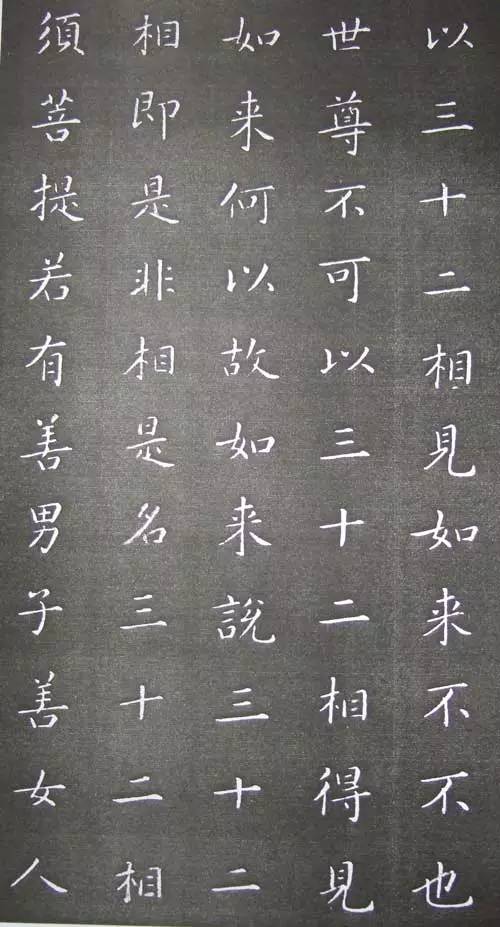 以三十二相見如来不不也
世尊不可以三十二相得見
如来何以故如来說三十二
相即是非相是名三十二相
須菩提若有善男子善女人